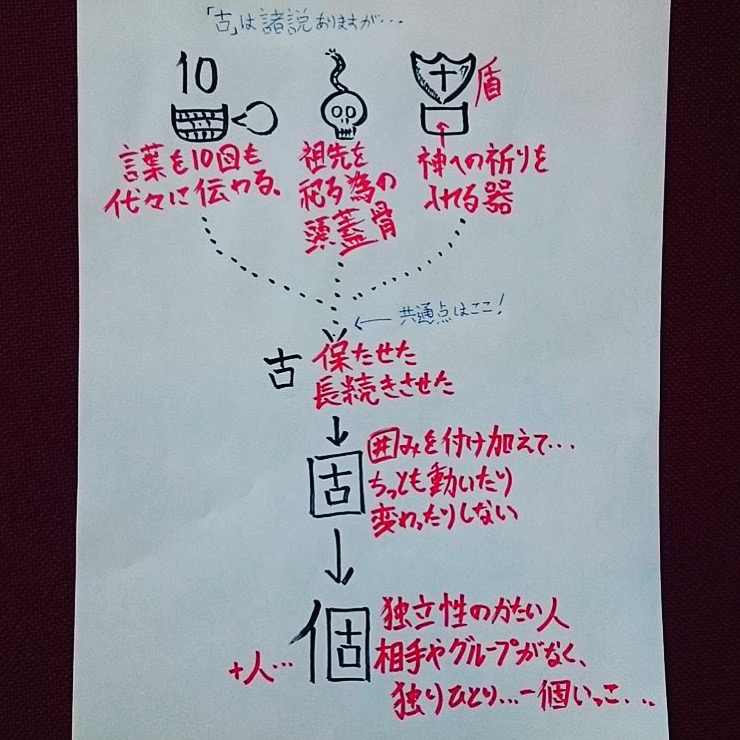 「古」は諸説ありますが…
10
盾
言葉を10回も
代々に伝わる。
祖先を
祀る為の
頭蓋骨
神への祈りを
入れる器
共通点はここ！
古
保たせた
長続きさせた
固
囲みを付け加えて…
ちっとも動いたり
変わったりしない
個
+人…
独立性のかたい人
相手やグループがなく、
独りひとり…一個いっこ...